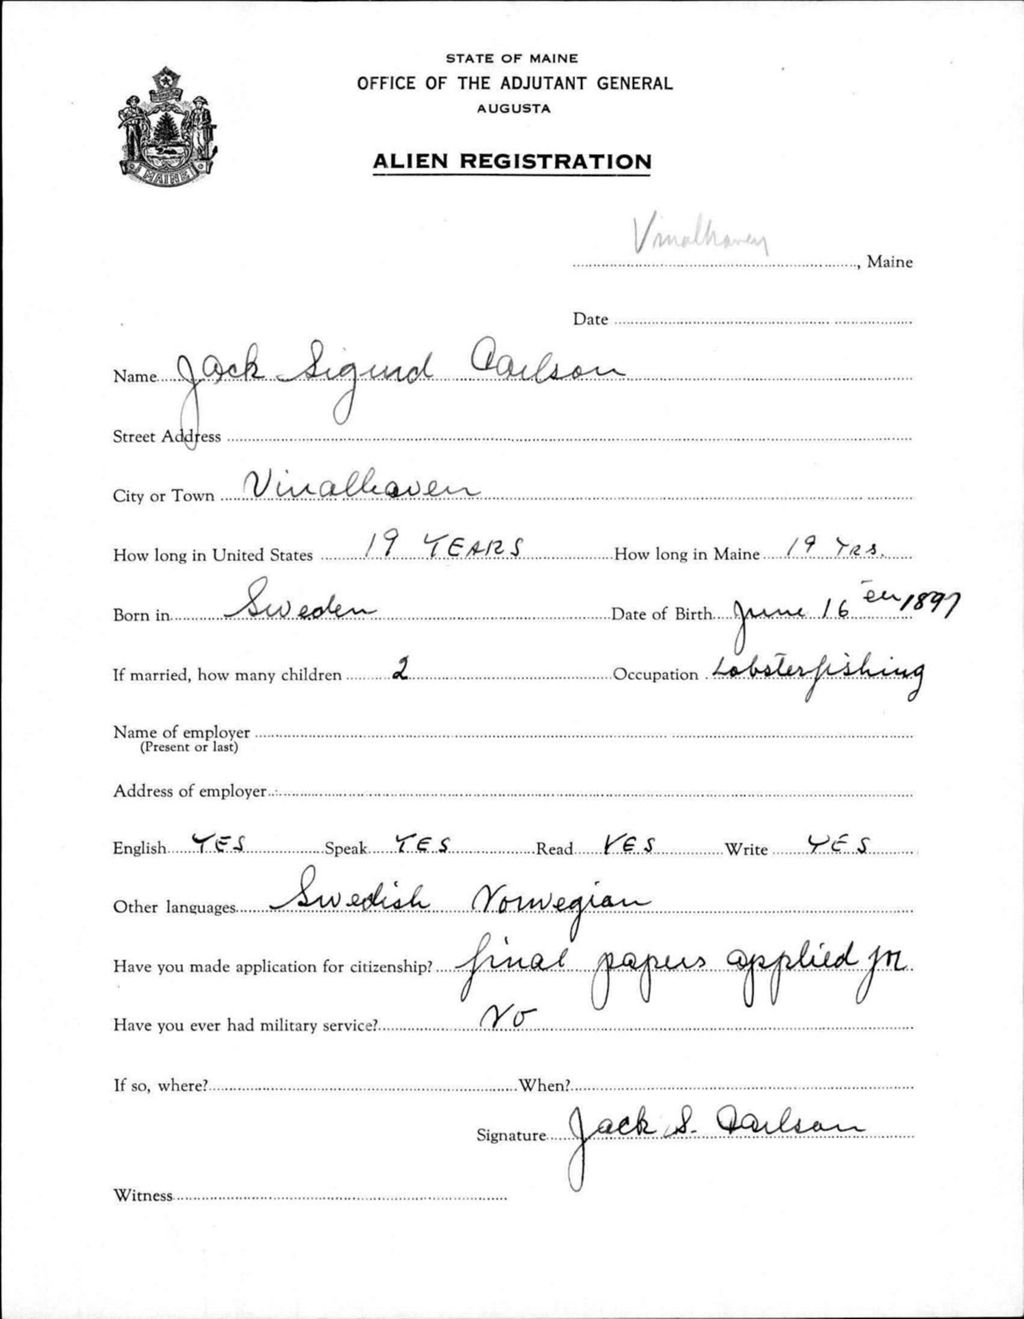 STATE OF MAINE
OFFICE OF THE ADJUTANT GENERAL
AUGUSTA
ALIEN REGISTRATION
MAINE
Vinalhaven, Maine
Date
Name Jack Sigurd Carlson
Street Address
City or Town Vinalhaven
How long in United States 19 YEARS How long in Maine 19 YRS.
Born in Sweden Date of Birth June 16 en 1897
If married, how many children 2 Occupation Lobsterfishing
Name of employer
(Present or last)
Address of employer
English YES Speak YES Read YES Write YES
Other languages Swedish Norwegian
Have you made application for citizenship? final papers applied for
Have you ever had military service? No
If so, where? When?
Signature Jack S. Carlson
Witness